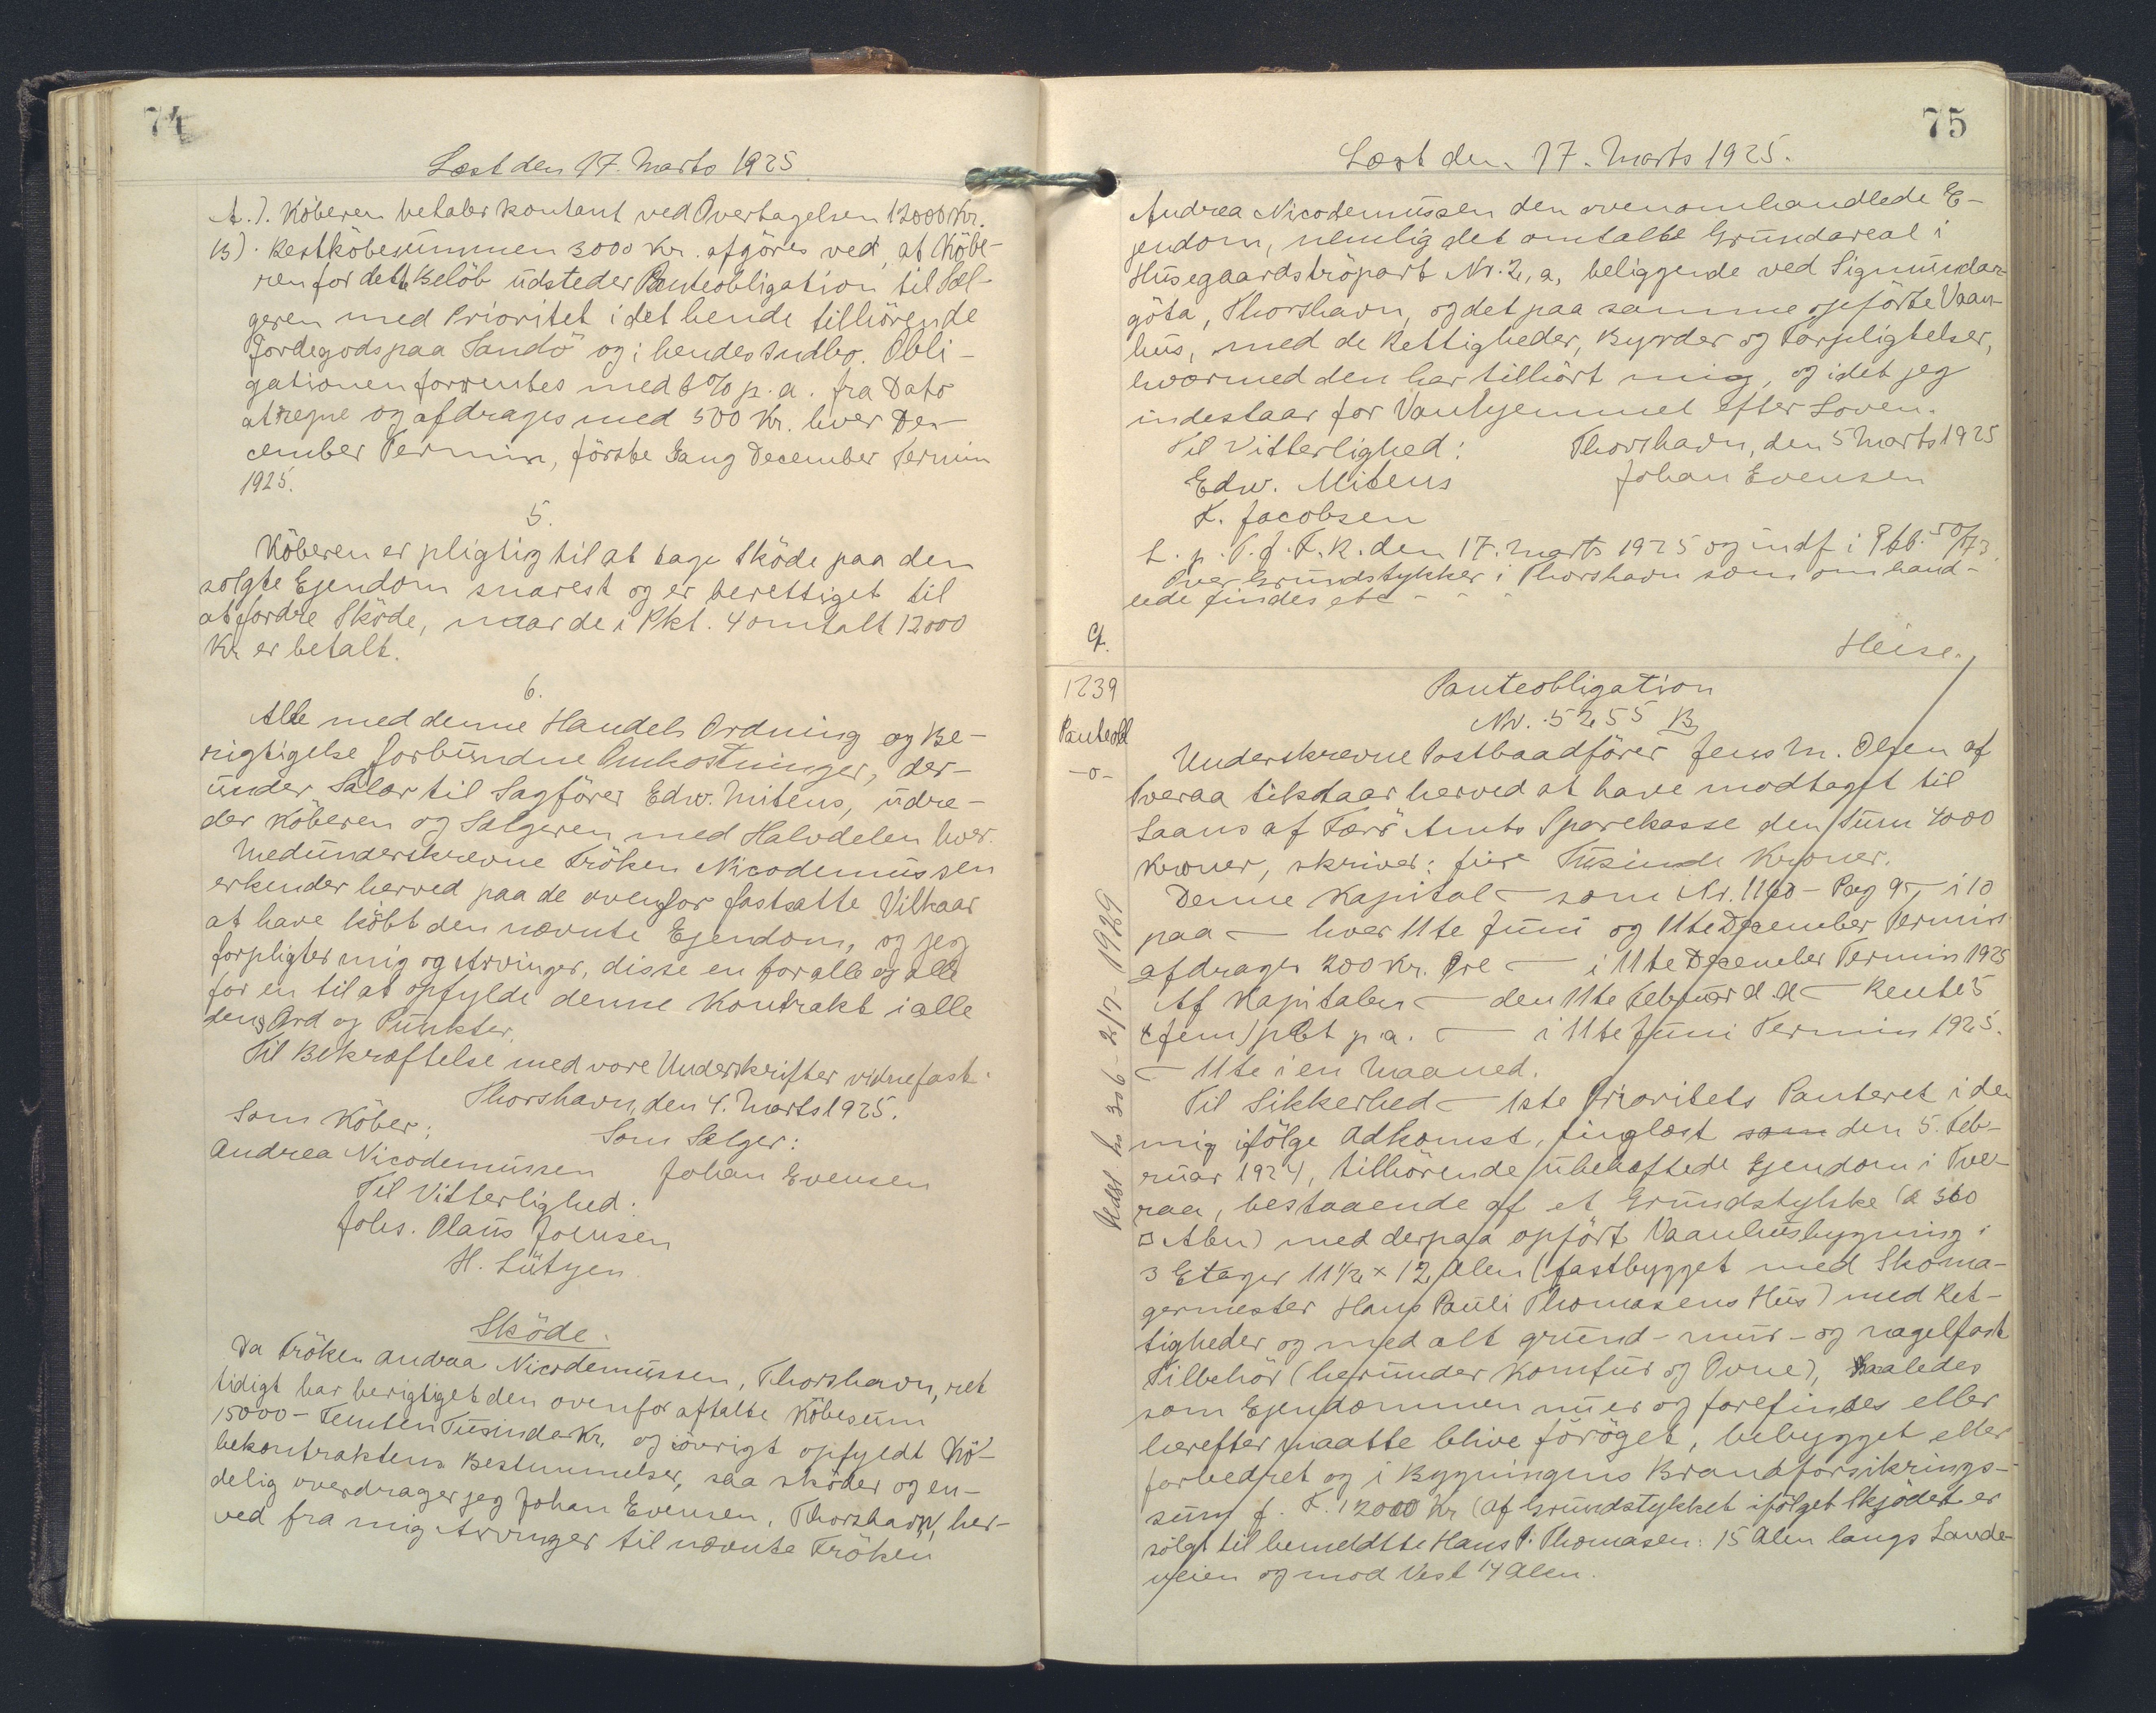 74
Læst den 17. Marts 1925
A.). Köberen betaler kontant ved Overtagelsen 12000 Kr.
B). Restköbesummen 3000 Kr. afgöres ved, at Köbe-
ren for dette Belöb udsteder Panteobligation til Sæl-
geren med Prioritet i det hende tilhörende
Jordegods paa Sandö og i hendes Indbo. Obli-
gationen forrentes med 6 % p. a. fra Dato
at regne og afdrages med 500 Kr. hver De-
cember Termin, förste Gang December Termin
1925.
5.
Köberen er pligtig til at tage Sköde paa den
solgte Ejendom snarest og er berettiget til
at fordre Sköde, naar de i Pkt. 4 omtalt 12000
Kr er betalt.
6.
Alle med denne Handels Ordning og Be-
rigtigelse forbundne Omkostninger, der-
under Salær til Sagförer Edw. Mitens, udre-
der Köberen og Sælgeren med Halvdelen hver.
Medunderskrevne Fröken Nicodemussen
erkender herved paa de ovenfor fastsatte Vilkaar
at have köbt den nævnte Ejendom, og jeg
forpligter mig og Arvinger, disse en for alle og alle
for en til at opfylde denne Kontrakt i alle
dens Ord og Punkter.
Til Bekræftelse med vore Underskrifter vidnefast.
Thorshavn, den 4. Marts 1925.
Som Köber: Som Sælger:
Andrea Nicodemussen Johan Evensen
Til Vitterlighed:
Johs. Olaus Joensen
H. Lützen
Sköde.
Da Fröken Andrea Nicodemussen, Thorshavn, ret
tidigt har berigtiget den ovenfor aftalte Köbesum
15000 - Femten Tusinde Kr. og iövrigt opfyldt Kö-
bekontraktens Bestemmelser, saa sköder og en-
delig overdrager jeg Johan Evensen, Thorshavn, her-
ved fra mig Arvinger til nævnte Fröken
75
Læst den 17. Marts 1925.
Andrea Nicodemussen den ovenomhandlede E-
jendom, nemlig det omtalte Grundareal i
Husegaardströpart Nr. 2, a, beliggende ved Sigmundar-
göta, Thorshavn, og det paa samme opförte Vaan-
hus, med de Rettigheder, Byrder og Forpligtelser,
hvormed den har tilhört mig, og idet jeg
indestaar for Vanhjemmel efter Loven.
Til Vitterlighed: Thorshavn, den 5 Marts 1925
Edw. Mitens Johan Evensen
K. Jacobsen
L. p. T. f. F. R. den 17. Marts 1925 og indf i Ptb. 50/73
Over Grundstykker i Thorshavn som omhand-
lede findes etc - - -
Cf.
Heise.
1239 Panteobligation
Nr. 5255 B
Panteobl
-o-
Underskrevne Postbaadförer Jens M. Olsen af
Tveraa tilstaar herved at have modtaget til
Laans af Færö Amts Sparekasse den Sum 4000
Kroner, skriver: fire Tusinde Kroner.
Denne Kapital — som Nr. 1160 - Pag 95 - i 10
paa — hver 11te Juni og 11te December Termin
afdrages 200 Kr. Öre — i 11te December Termin 1925
Af Kapitalen — den 11te Februar d. A — Rente 5
(fem) pCt p. a. — i 11te Juni Termin 1925.
— 11te i en Maaned.
Til Sikkerhed — 1ste Prioritets Panteret i den
mig ifölge Adkomst, tinglæst som den 5. Feb-
ruar 1924, tilhörende ubehæftede Ejendom i Tve-
raa, bestaaende af et Grundstykke (a 360
□ Alen) med derpaa opfört Vaanhusbygning i
3 Etager 11 1/2 x 12 Alen (fastbygget med Skoma-
germester Hans Pauli Thomasens Hus) med Ret-
tigheder og med alt grund- mur- og nagelfast
Tilbehör (herunder Komfur og Ovne), saaledes
som Ejendommen nu er og forefindes eller
herefter maatte blive foröget, bebygget eller
forbedret og i Bygningens Brandforsikrings-
sum f. T. 12000 Kr (af Grundstykket ifölget Skjödet er
solgt til bemeldte Hans P. Thomasen: 15 Alen langs Lande-
veien og mod Vest 14 Alen.
Aflst Nr 306 - 2/7 - 1929